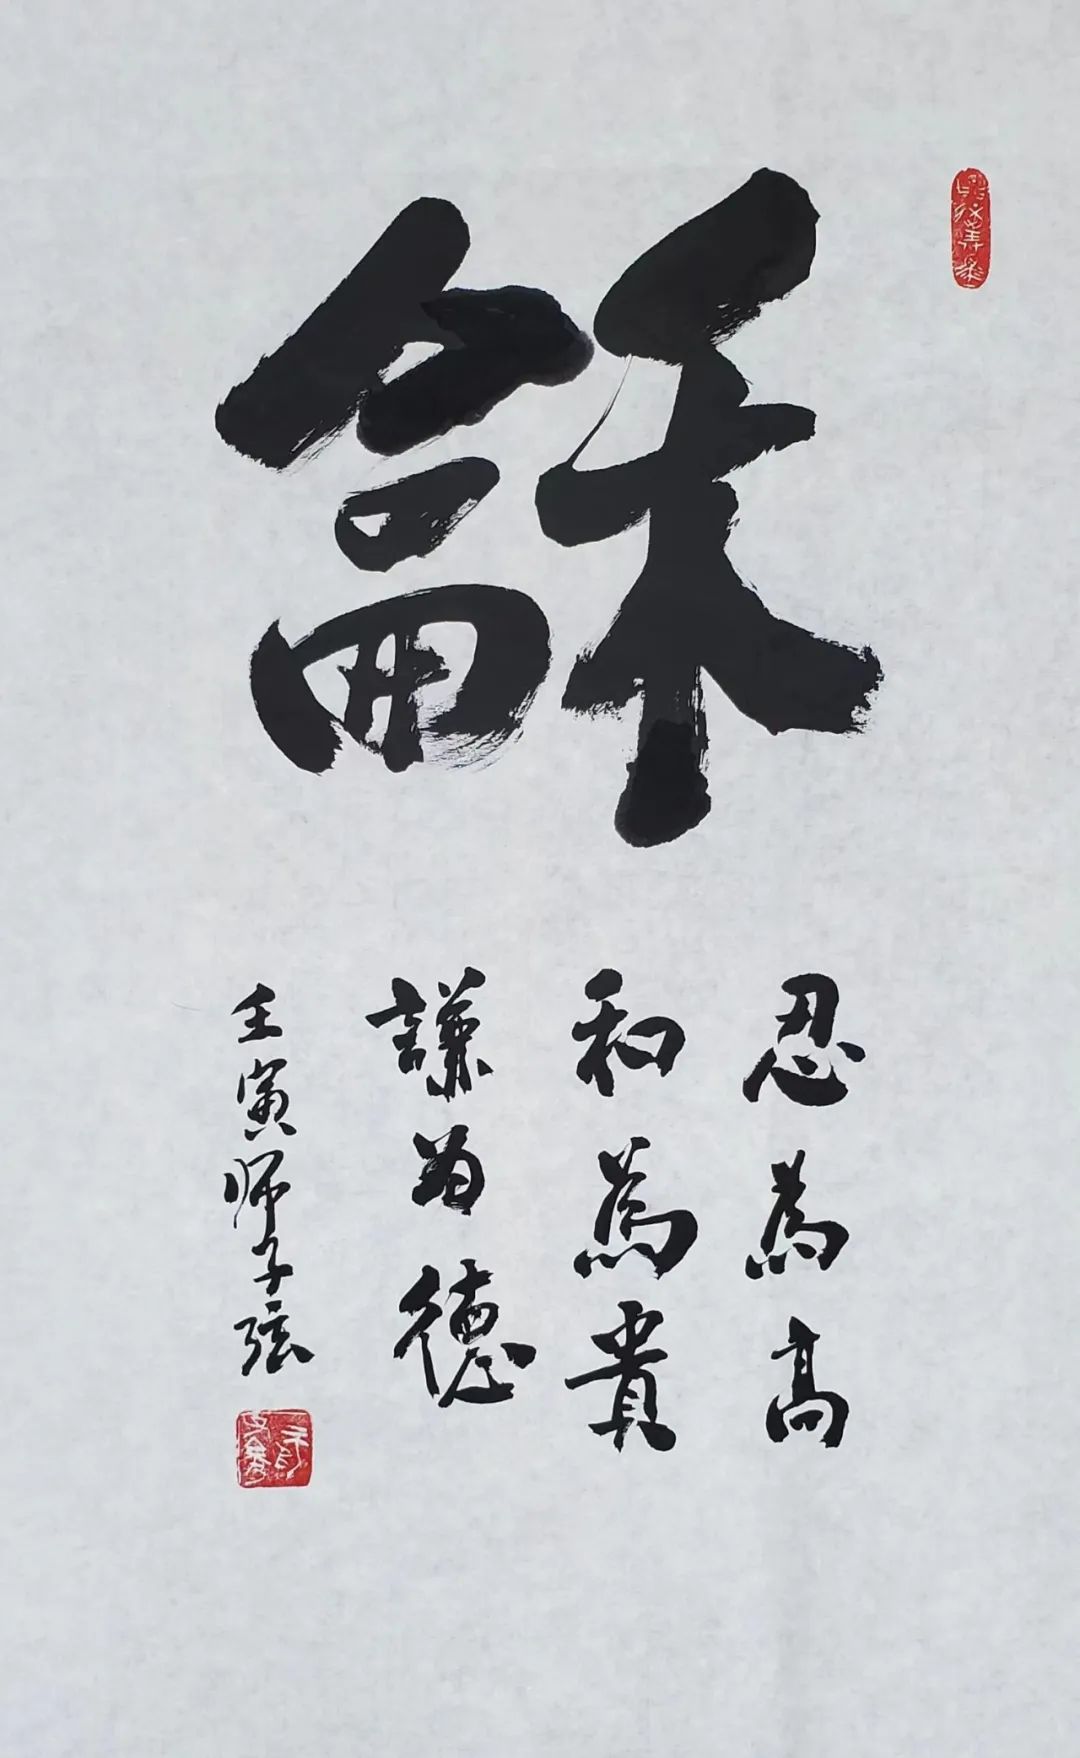 龢
忍為高
和為貴
謙为德
壬寅师子弦